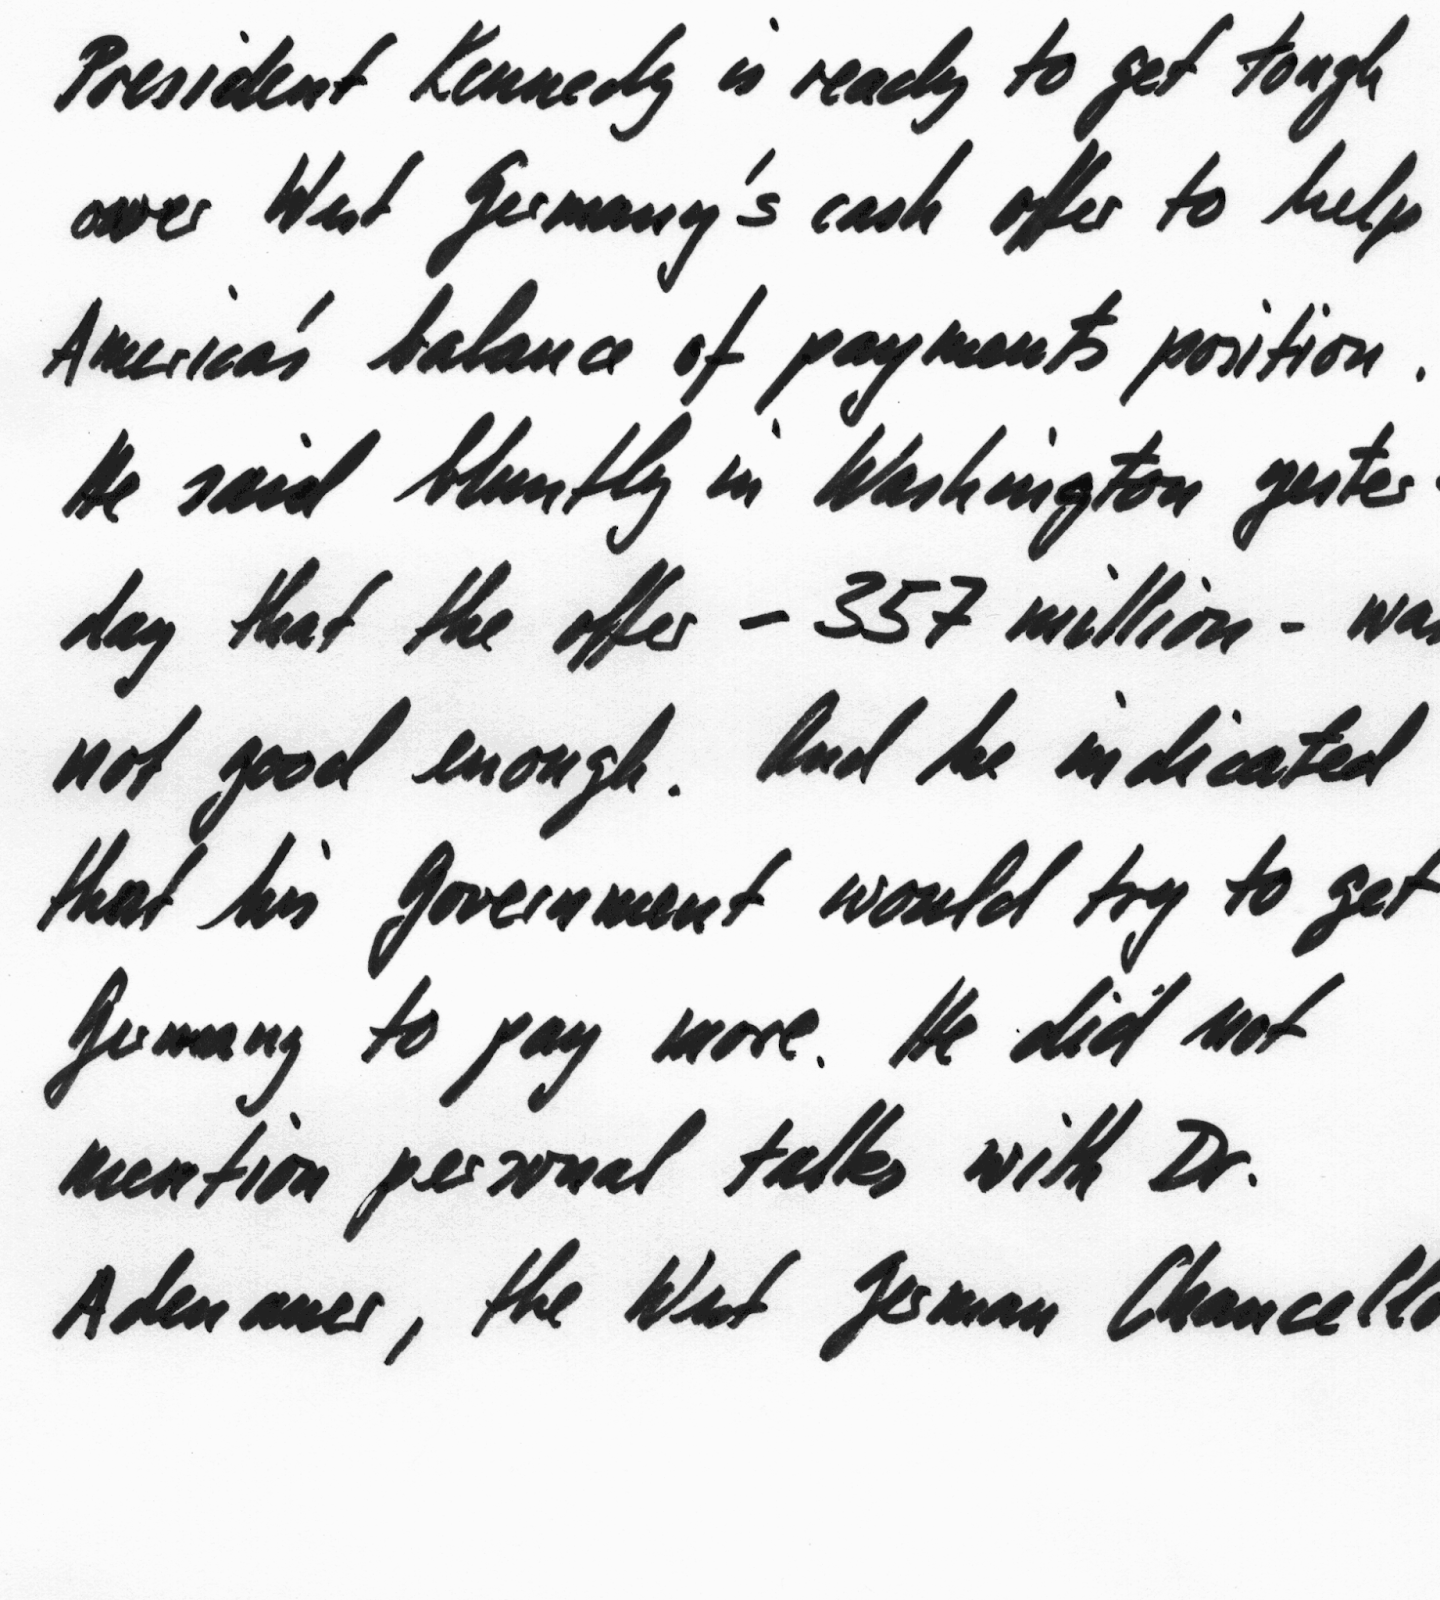 President Kennedy is ready to get tough
over West Germany's cash offer to help
America's balance of payments position.
He said bluntly in Washington yester-
day that the offer - 357 million - was
not good enough. And he indicated
that his Government would try to get
Germany to pay more. He did not
mention personal talks with Dr.
Adenauer, the West German Chancello